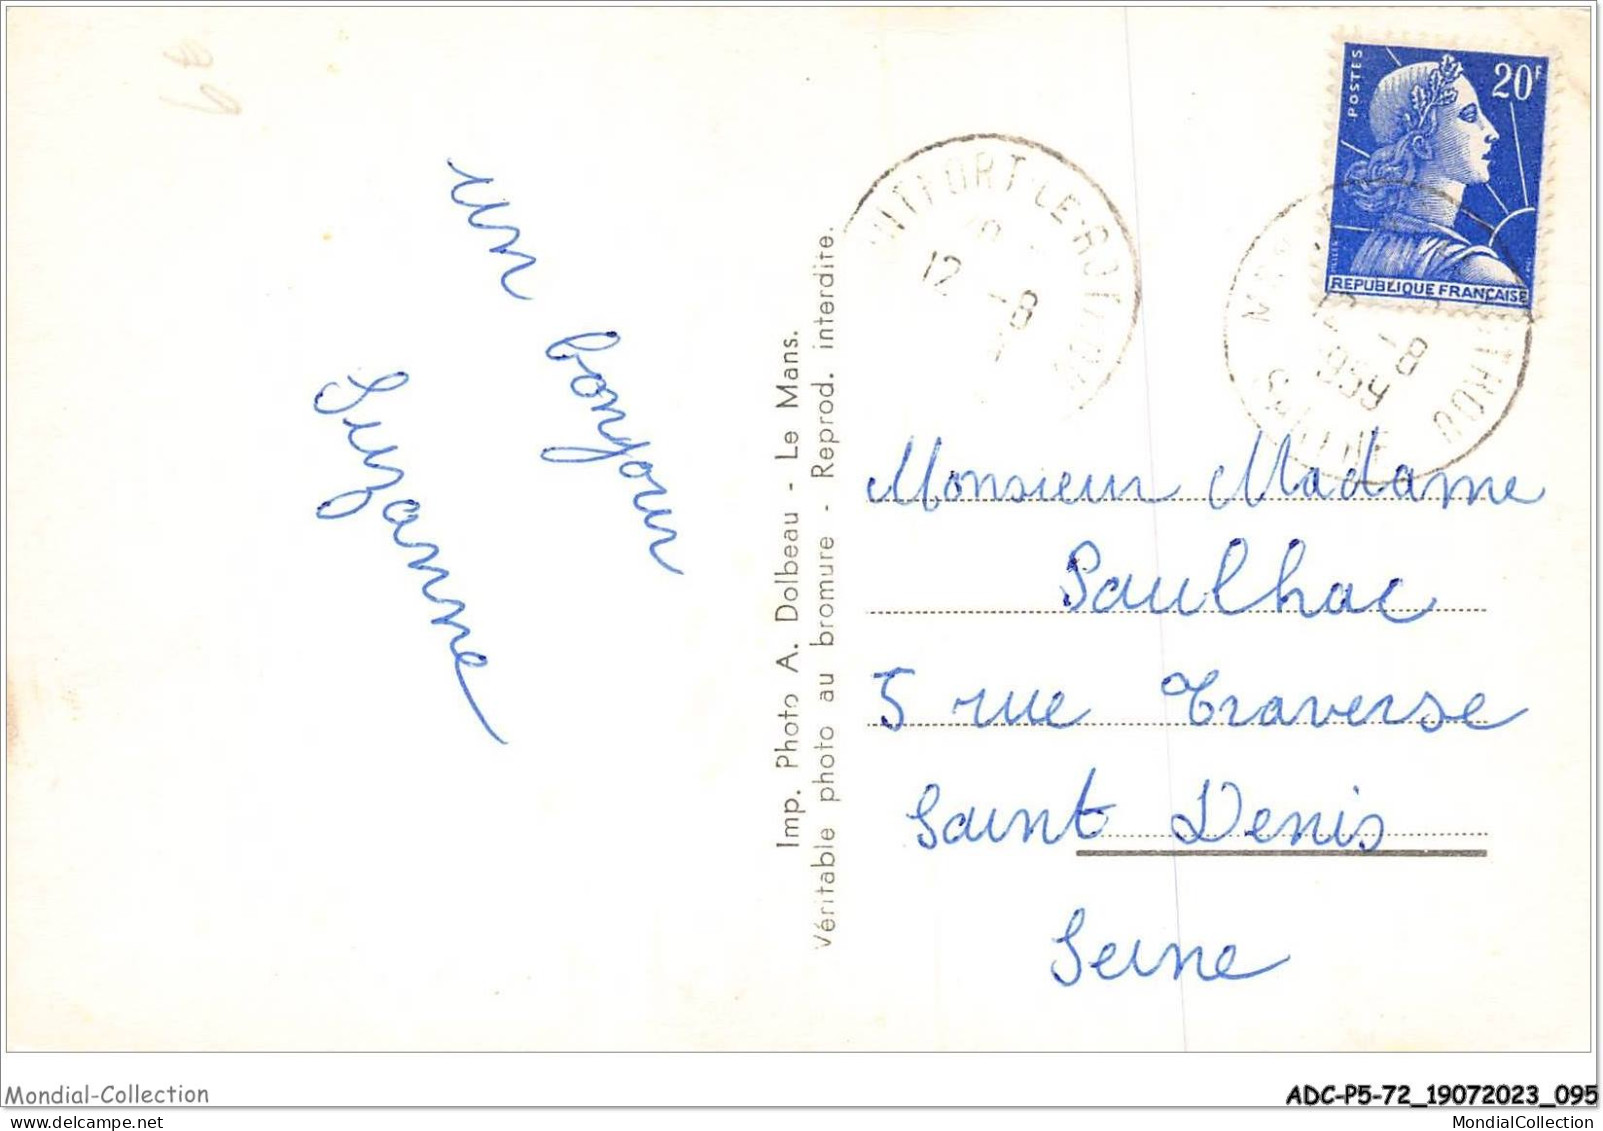 un bonjour
Suzanne
Imp. Photo A. Dolbeau - Le Mans.
Véritable photo au bromure - Reprod. interdite.
POSTES
20F
REPUBLIQUE FRANÇAISE
12 -8
-8
1959
Monsieur Madame
Paulhac
5 rue Traverse
Saint Denis
Seine
Mondial-Collection
ADC-P5-72_19072023_095
MondialCollection